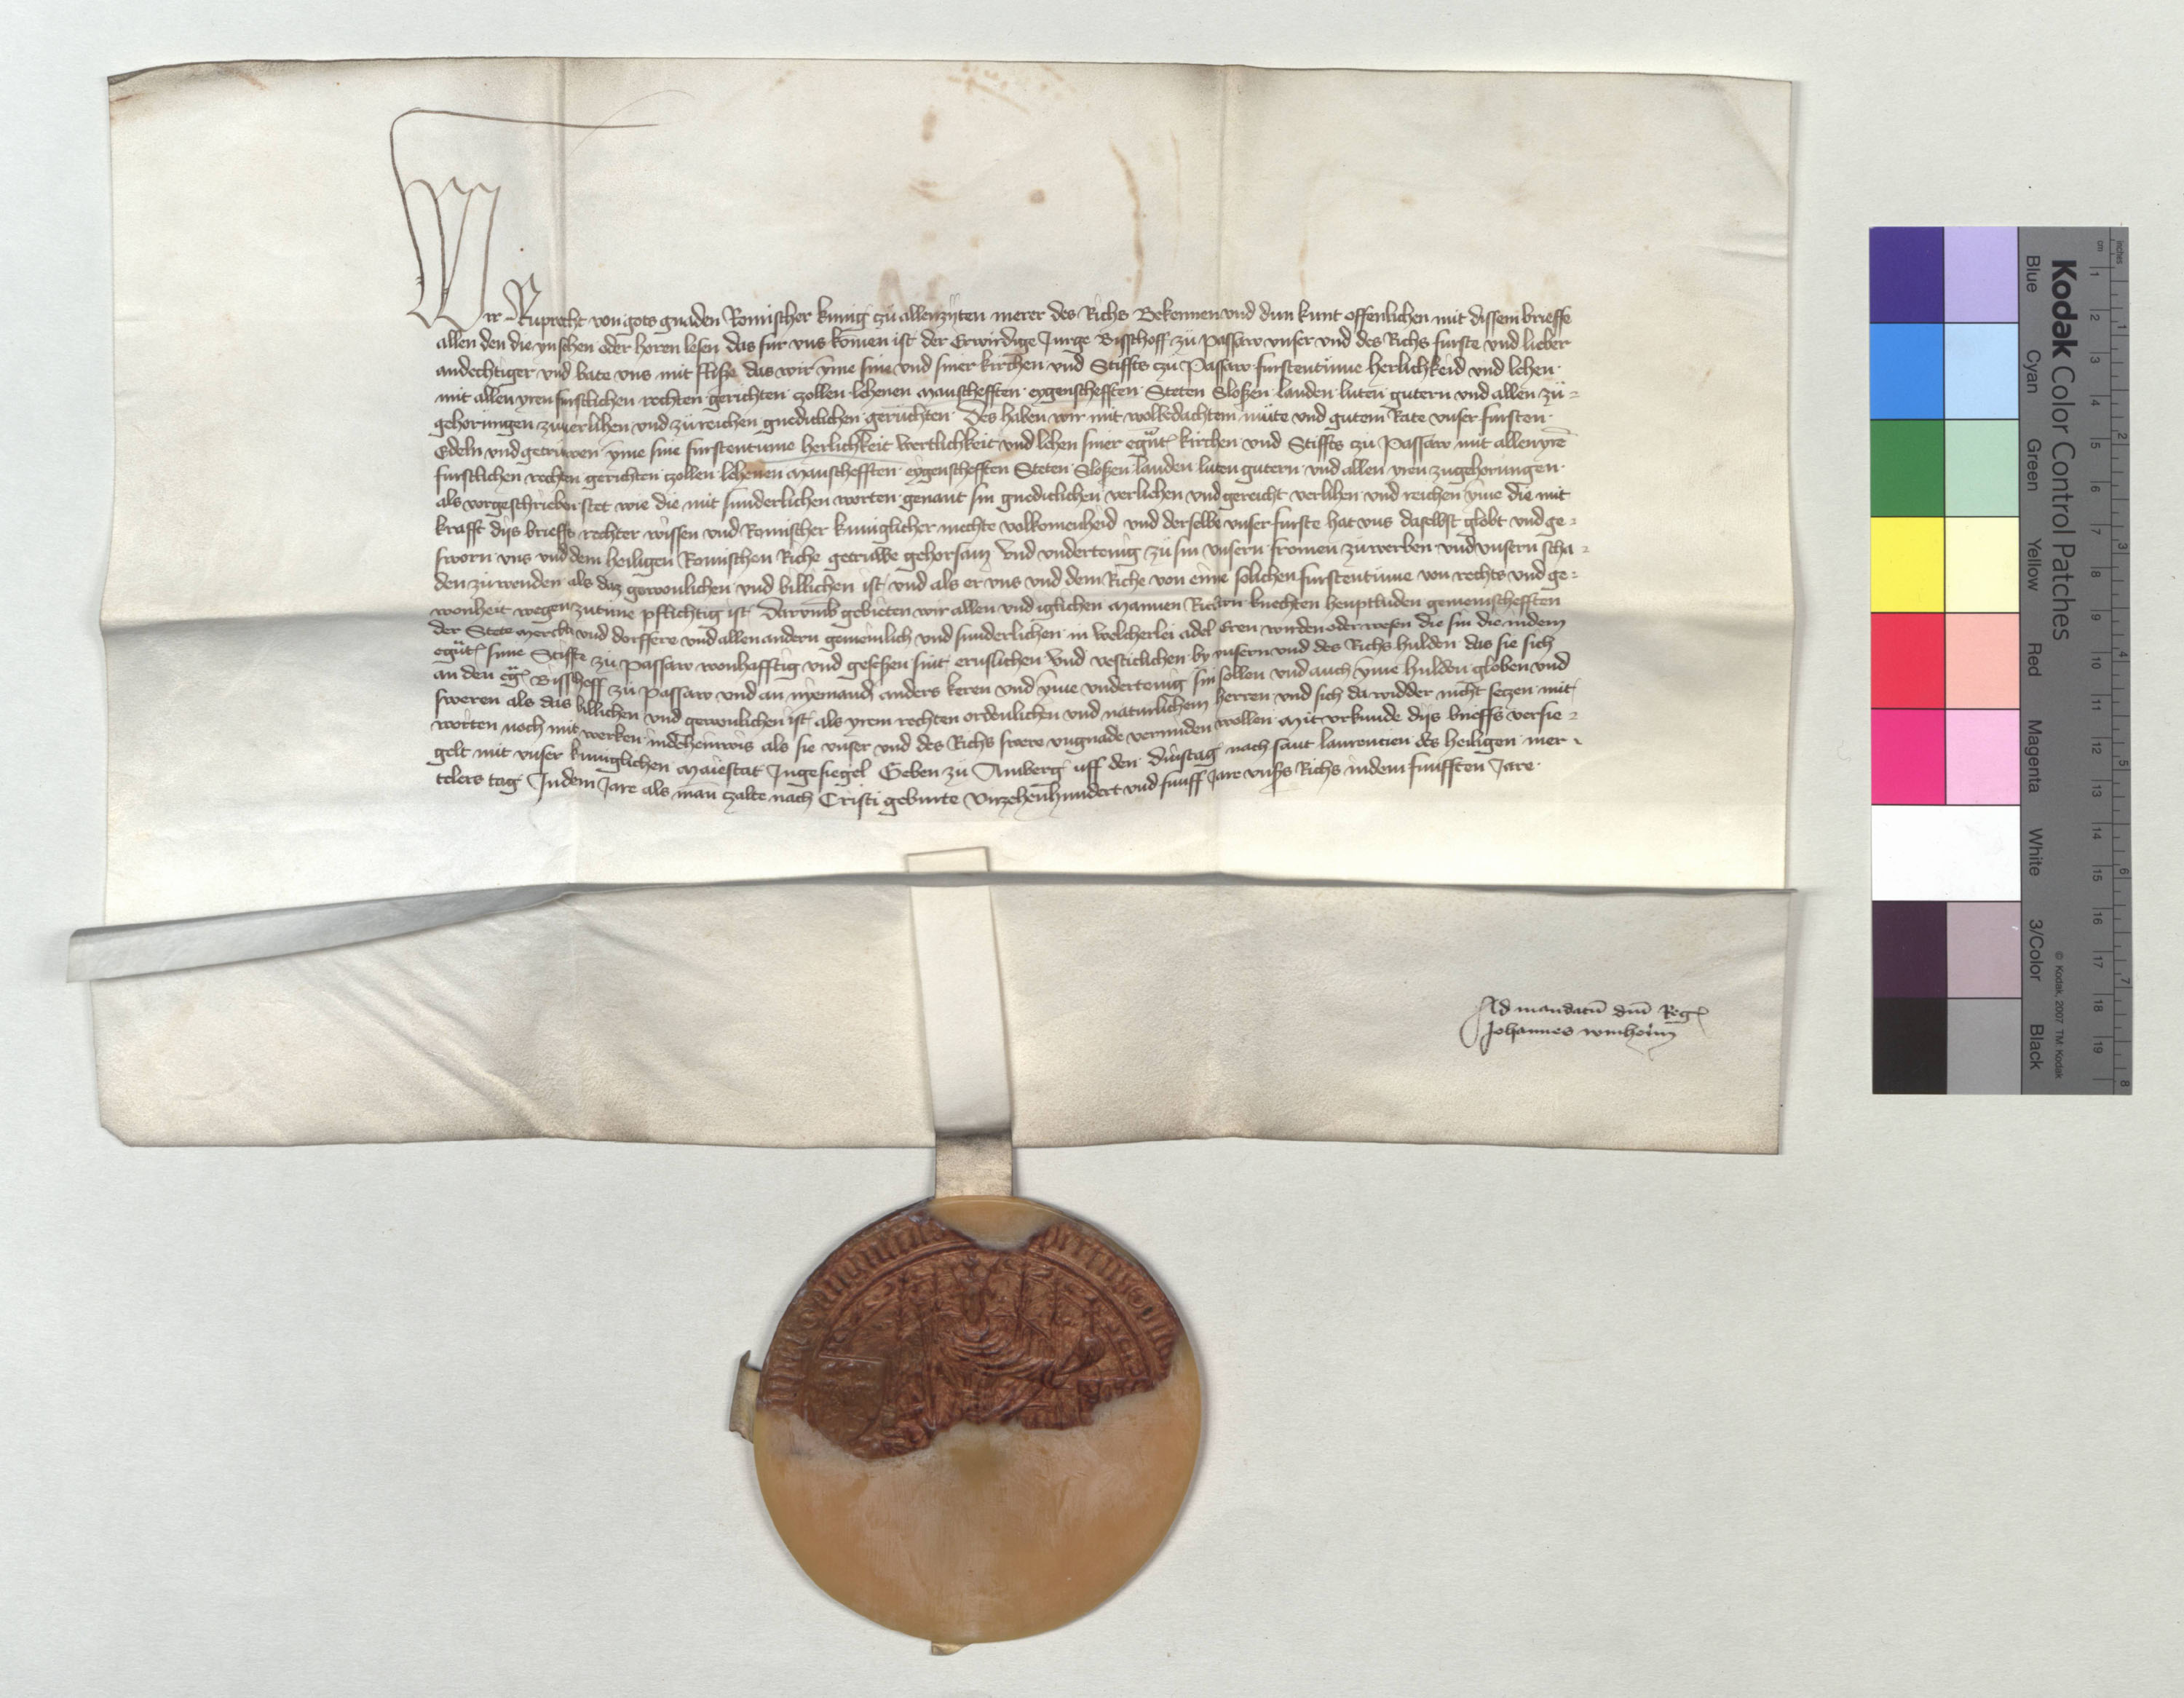 Wir Ruprecht von gots gnaden Romischer kunig zü allenzijten merer des Richs Bekennen und dun kunt offenlichen mit dissem brieffe
allen den die yn sehen oder horen lesen das fur uns komen ist der Erwirdige Jurge Bisschoff zü Passaw unser und des Richs furste und lieber
andechtiger und bate uns mit fliße das wir yme sine und siner kirchen und Stiffts czu Passaw furstentüme herlichkeid und lehen
mit allen yren furstlichen rechten gerichten zollen lehenen manschefften eygenschefften Steten Sloßen landen luten gutern und allen zü-
gehorungen zuverlihen und zü reichen gnediclichen geruchten Des haben wir mit wolbedachtem müte und gutem Rate unser fursten
Edeln und getruwen yme sine furstentume herlichkeit wertlichkeit und lehen siner egnt kirchen und Stiffts czu Passaw mit allen yrē
furstlichen rechten gerichten zollen lehenen manschefften eygenschefften Steten Sloßen landen luten gutern und allen yren zugehorungen
als vorgeschrieben stet wie die mit sunderlichen worten genant sin gnediclichen verlichen und gereicht verlihen und reichen yme die mit
krafft dijs brieffs rechter wissen und Romischer kuniglicher mechte volkomenheid und derselbe unser furste hat uns daselbst globt und ge-
sworn uns und dem heiligen Romischen Riche getruwe gehorsam und undertenig zü sin unsern fromen zü werben und unsern scha-
den zü wenden als daz gewonlichen und billichen ist und als er uns und dem Riche von eime solichen furstentüme von rechts und ge-
wonheit wegen zutune pflichtig ist Darumb gebieten wir allen und iglichen mannen Rittern knechten heuptluden gemeinschefften
der Stete merckte und dorffere und allen andern gemeinlich und sunderlichen in welcherlei adel eren wirden oder wesen die sin die in dem
egnt sime Stiffte zü Passaw wonhafftig und geseßen sint ernslichen und vesticlichen by unsern und des Richs hulden das sie sich
an den eg Bisschoff zü Passaw und an nyemand anders keren und yme undertenig sin sollen und auch yme hulden globen und
sweren als das billichen und gewonlichen ist als yrem rechten ordenlichen und naturlichem herren und sich da widder nicht setzen mit
worten noch mit werken in dheinwis als sie unser und des Richs swere ungnade vermiden wollen Mit urkunde dijs brieffs versie-
gelt mit unser kuniglichen Maiestat Ingesiegel Geben zü Amberg uff den dinstag nach sant laurencien des heiligen mer-
telers tag In dem Jare als man zalte nach Cristi geburte Vierzehenhundert und funff Jare unßs Richs in dem funfften Jare
Ad mandatū dnī Reg
Johannes winheim
Kodak Color Control Patches
© Kodak, 2007 TM: Kodak
Blue Cyan Green Yellow Red Magenta White 3/Color Black
cm 1 2 3 4 5 6 7 8 9 10 11 12 13 14 15 16 17 18 19
inches 1 2 3 4 5 6 7 8